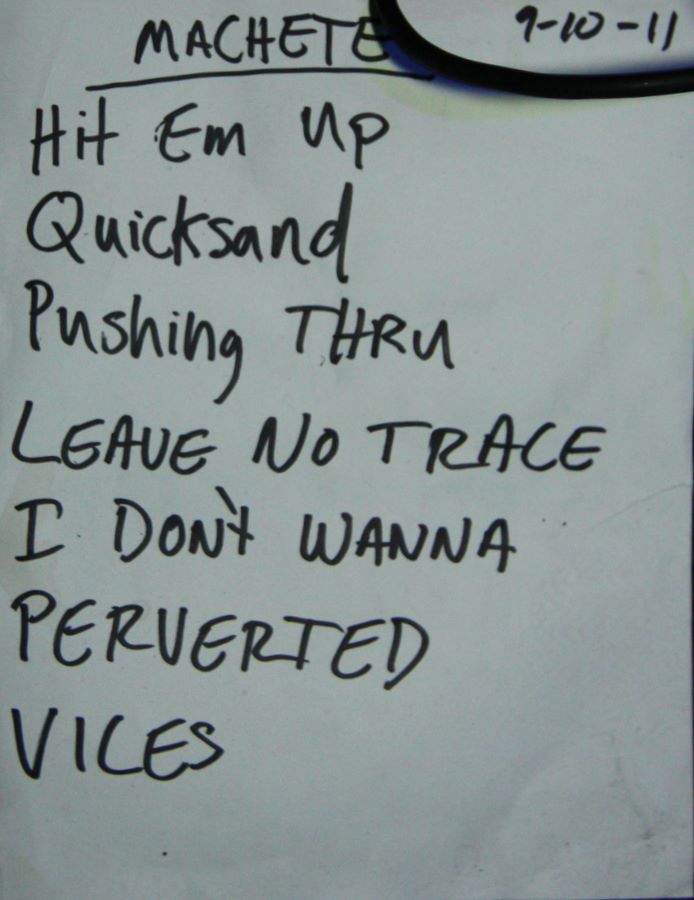 MACHETE 9-10-11
Hit Em Up
Quicksand
Pushing THRU
LEAVE NO TRACE
I DON't WANNA
PERVERTED
VICES